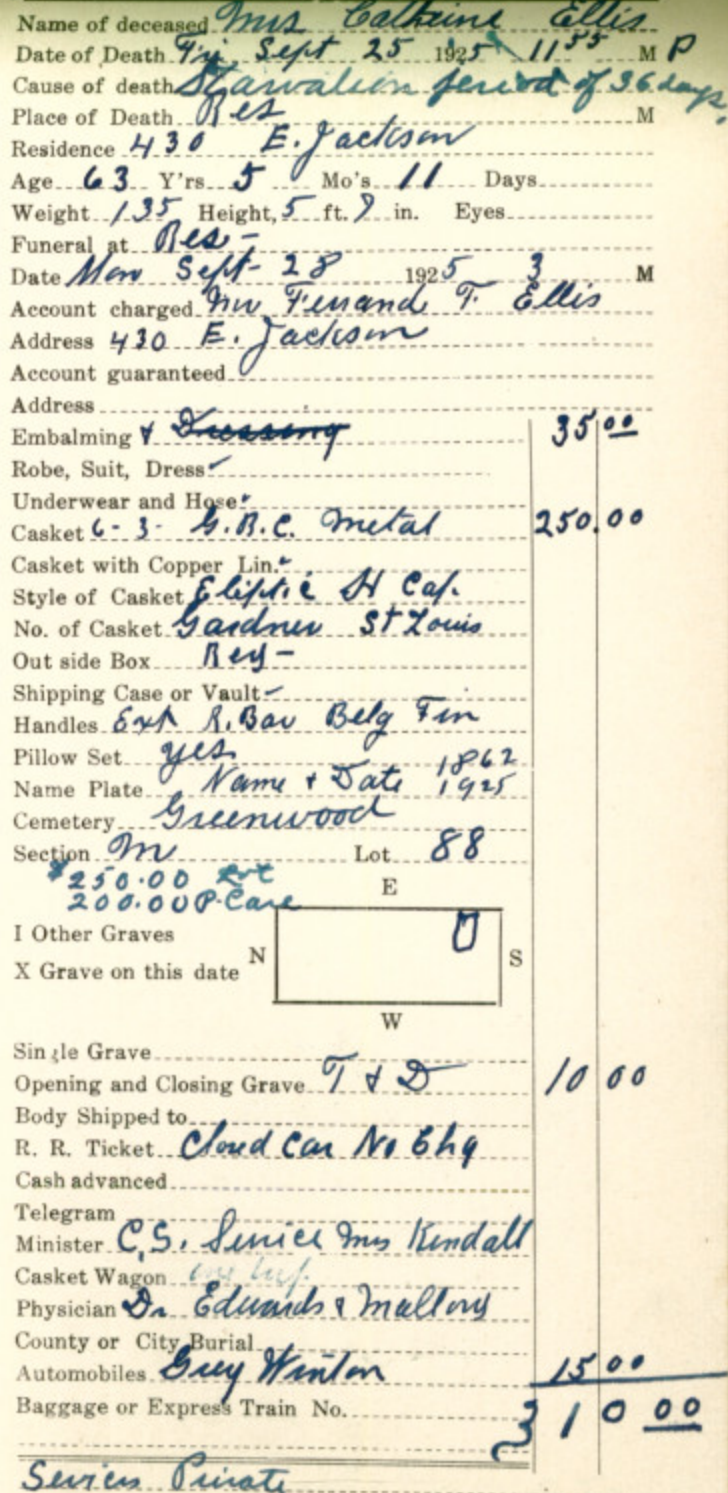 Name of deceased Mrs Cathrine Ellis
Date of Death Fri, Sept 25 1925 11 55 M P
Cause of death Starvation period of 36 days.
Place of Death Res M
Residence 430 E. Jackson
Age 63 Y'rs 5 Mo's 11 Days
Weight 135 Height, 5 ft. 7 in. Eyes
Funeral at Res -
Date Mon Sept - 28 1925 3 M
Account charged Mr T. Ellis
Address 430 E. Jackson
Account guaranteed
Address
Embalming & Dressing 35 00
Robe, Suit, Dress
Underwear and Hose
Casket 6-3- Metal 250.00
Casket with Copper Lin.
Style of Casket Eliptic Cap.
No. of Casket Gardner St Louis
Out side Box
Shipping Case or Vault
Handles Ext Bar Fin
Pillow Set yes 1862
Name Plate Name & Date 1925
Cemetery Greenwood
Section M Lot 88
$250.00 Lot
200.00 P. Care
E
I Other Graves
N S
X Grave on this date
W
Single Grave
Opening and Closing Grave T & D 10 00
Body Shipped to
R. R. Ticket Closed Car No Chg
Cash advanced
Telegram
Minister C.S. Service Mrs Kendall
Casket Wagon
Physician Dr Edwards & Mallory
County or City Burial
Automobiles Grey Winton 15 00
Baggage or Express Train No. 310 00
Private